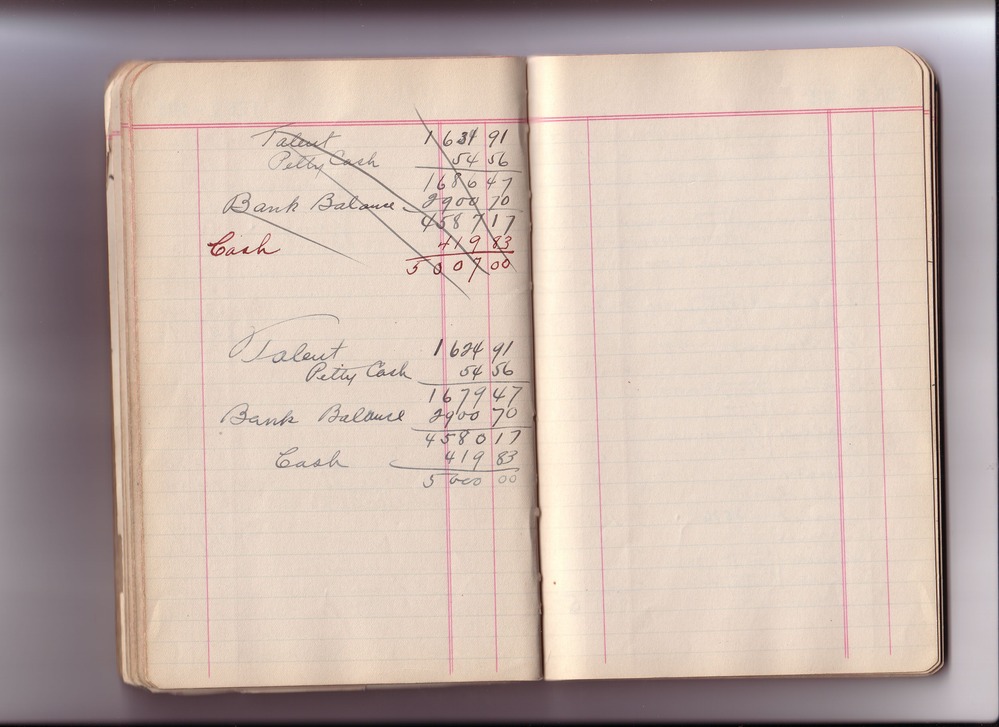 Talent 1634 91
Petty Cash 54 56
1686 47
Bank Balance 2900 70
4587 17
Cash 419 83
5007 00
Talent 1624 91
Petty Cash 54 56
1679 47
Bank Balance 2900 70
4580 17
Cash 419 83
5000 00